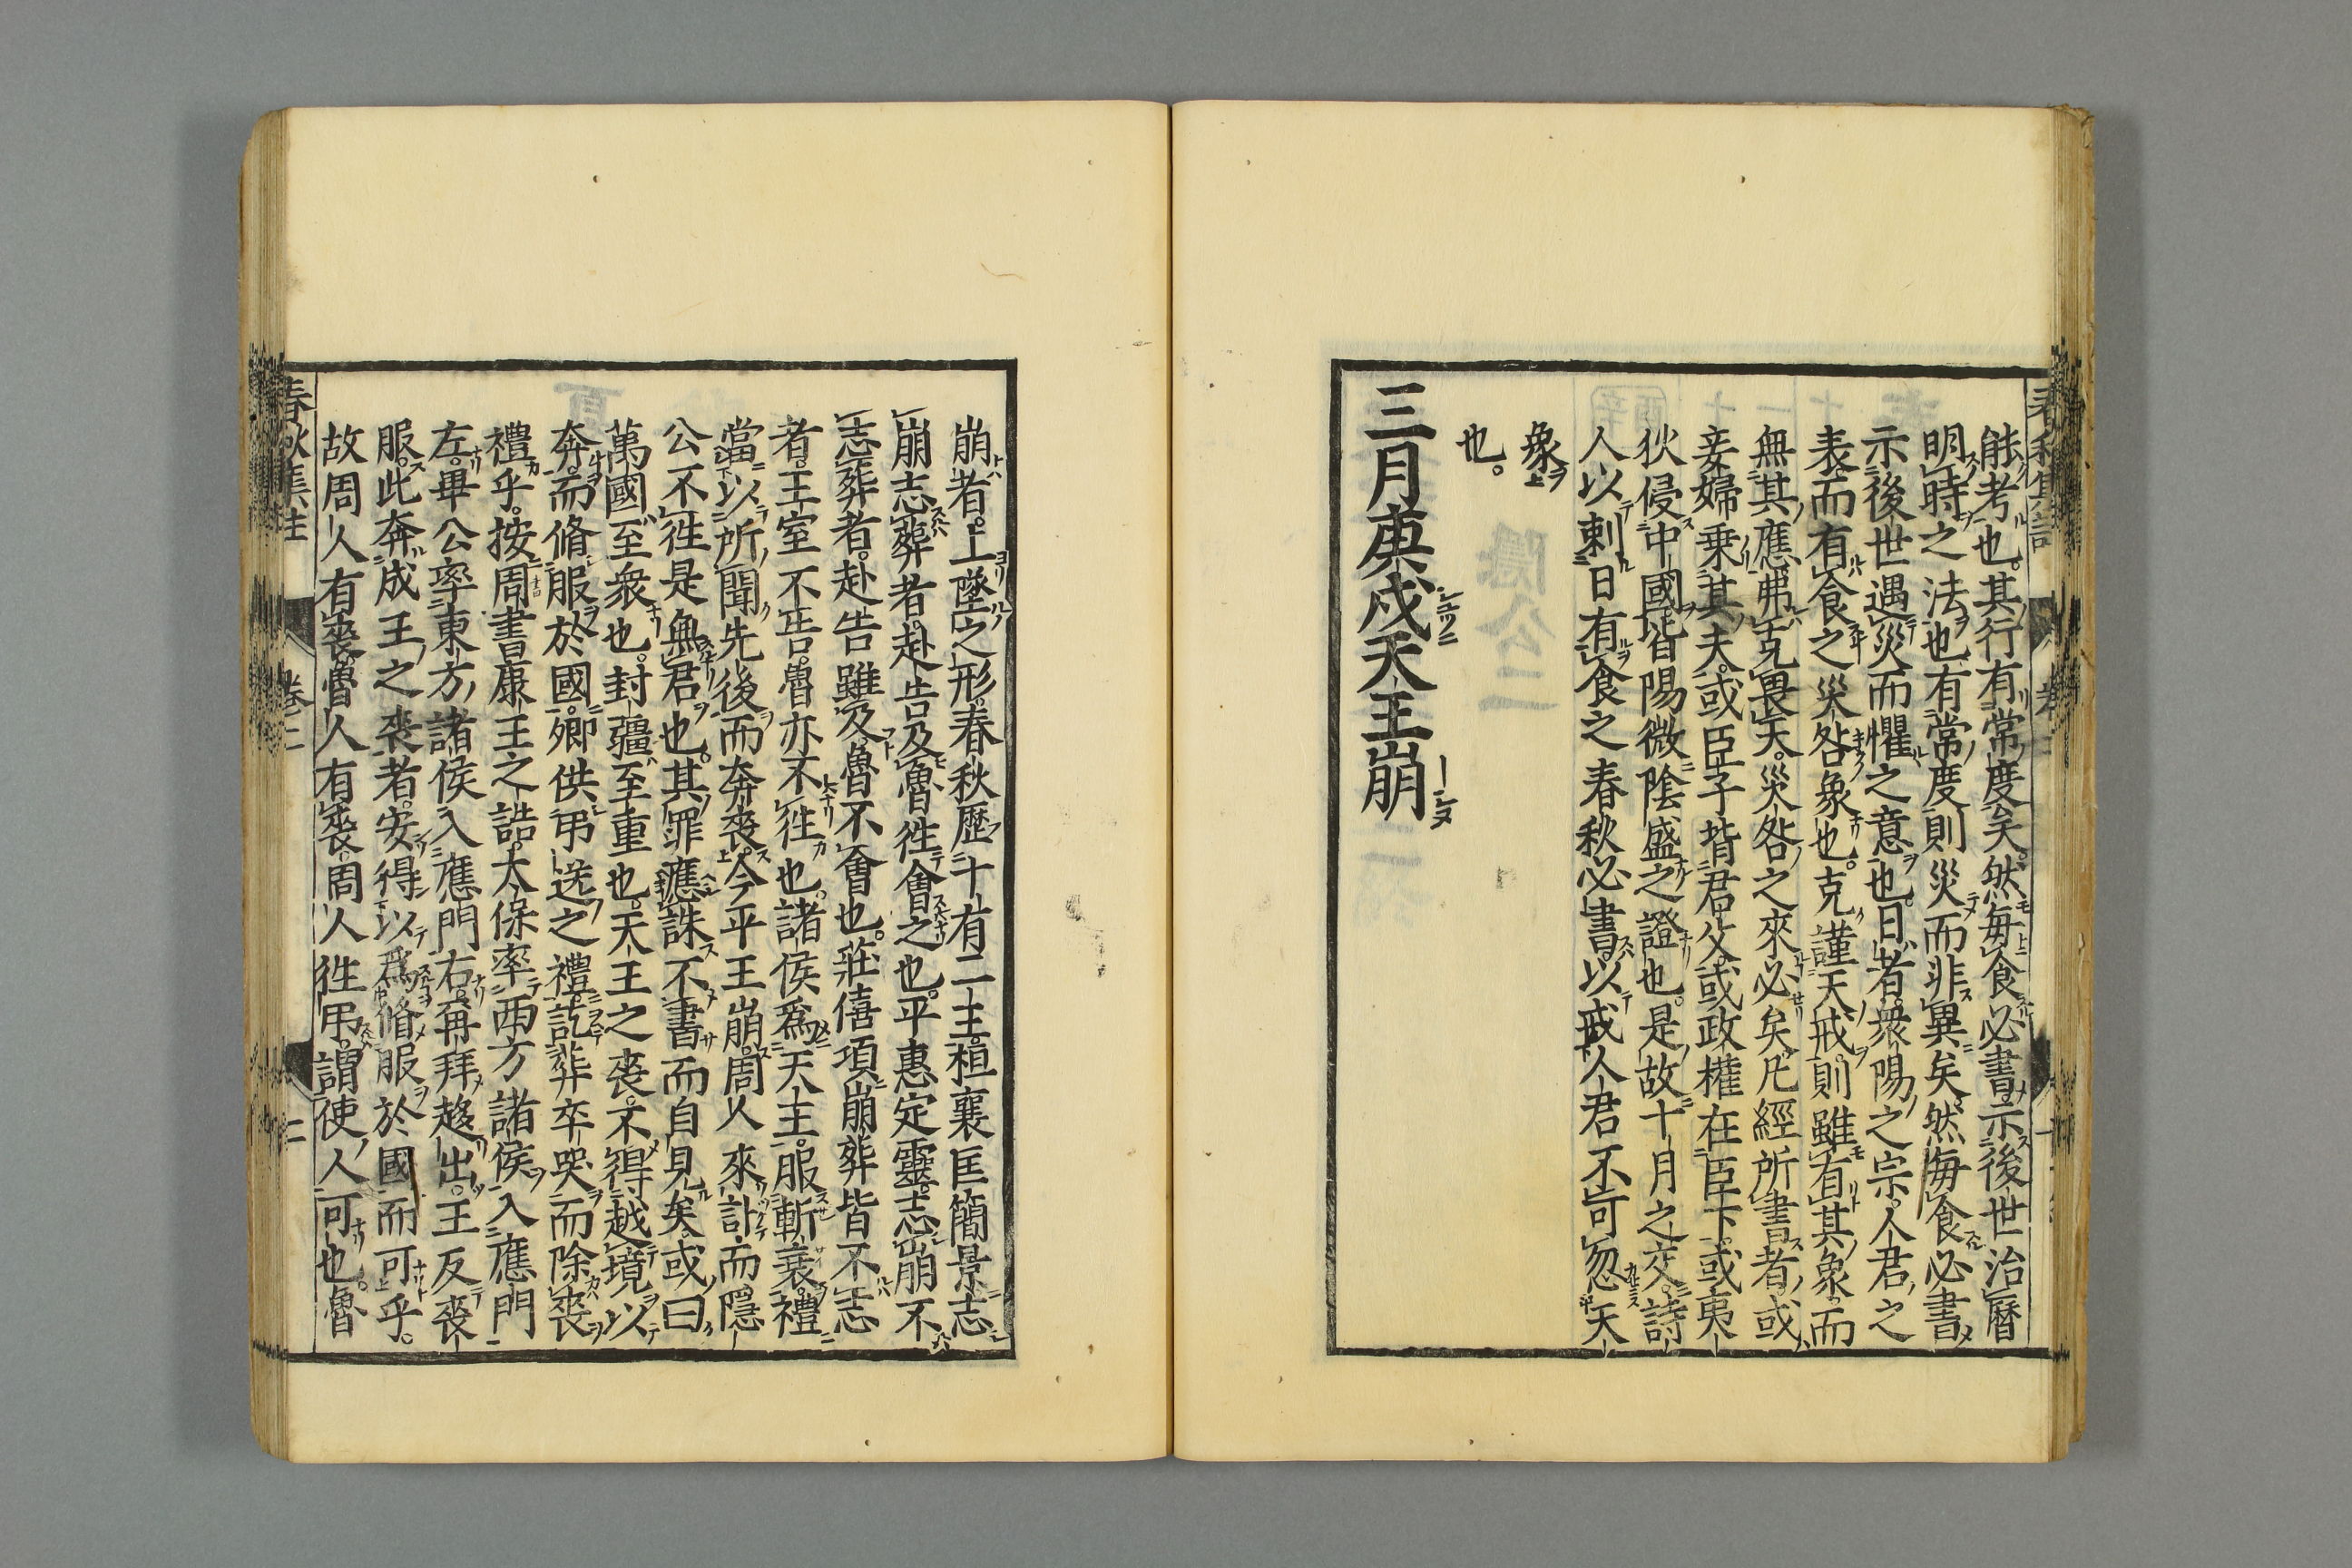 能考也。其行有常度矣。然毎食必書。示後世治曆
明時之法也。有常度則災而非異矣。然毎食必書。
示後世遇災而懼之意也。日者。衆陽之宗。人君之
表。而有食之災咎象也。克謹天戒。則雖有其象。而
無其應。弗克畏天。災咎之來必矣。凡經所書者。或
妾婦乗其夫。或臣子背君父。或政權在臣下。或夷
狄侵中國。皆陽微陰盛之證也。是故十月之交。詩
人以刺。日有食之。春秋必書。以戒人君不可忽天
象
也。
三月庚戌天王崩
崩者。上墜之形。春秋歴十有二王。桓襄匡簡景志
崩志葬者。赴告及魯徃會之也。平惠定靈。志崩不
志葬者。赴告雖及魯不會也。莊僖頃。崩葬皆不志
者。王室不告。魯亦不徃也。諸侯爲天王。服斬衰。禮
當以所聞先後而奔喪。今平王崩。周人來訃。而隱
公不徃是無君也。其罪應誅不書而自見矣。或曰
萬國至衆也。封疆至重也。天王之喪。不得越境以
奔。而脩服於國。卿供弔送之禮。訖葬卒哭而除喪
禮乎。按周書康王之誥。大保率西方諸侯入應門
左。畢公率東方諸侯入應門右。再拜趨出。王反喪
服。此奔成王之喪者。安得以爲脩服於國而可乎。
故周人有喪。魯人有喪。周人徃弔。謂使人可也。魯
春秋集註
卷二
二